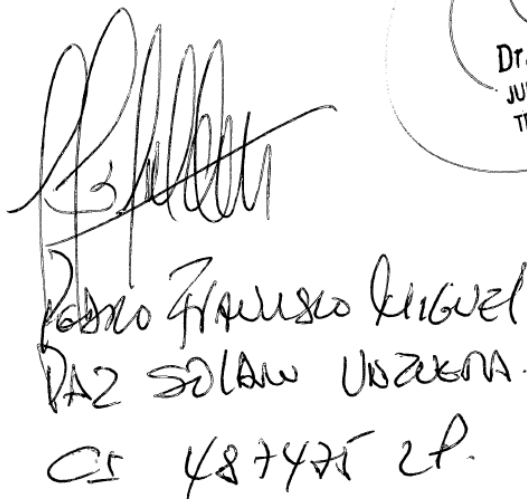 Dr.
JU
T
PEDRO FRANCISCO MIGUEL
PAZ SOLANO UNZUETA.
CI 487475 LP.